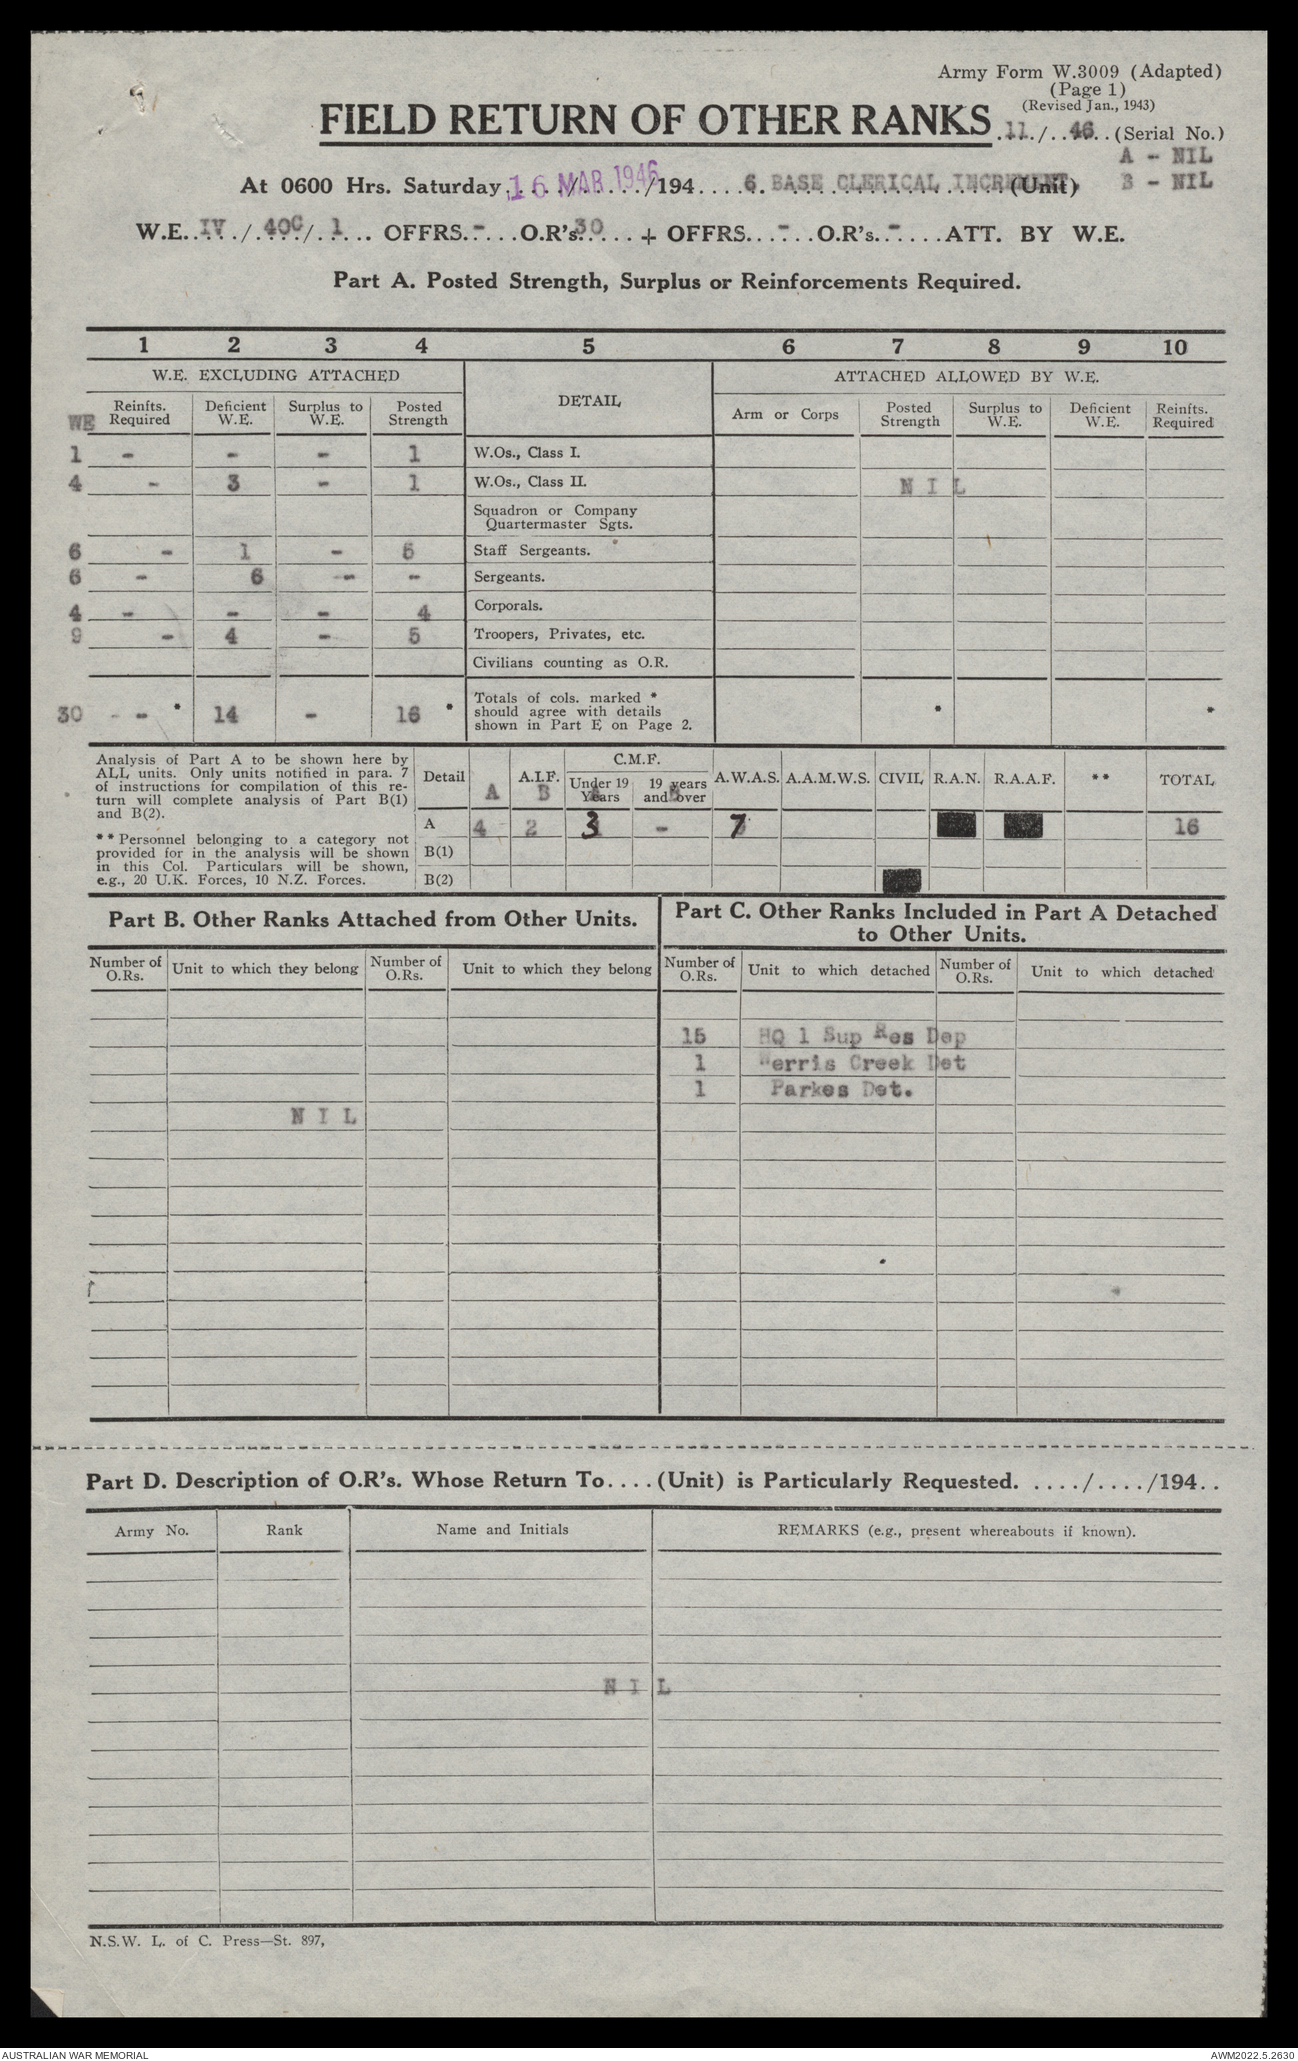 Army Form W.3009 (Adapted)
(Page 1)
(Revised Jan., 1943)
FIELD RETURN OF OTHER RANKS .11./..46..(Serial No.)
A - NIL
At 0600 Hrs. Saturday 16 MAR 1946 /194.... 6 BASE CLERICAL INCREMENT. (Unit) B - NIL
W.E. IV / 40C / 1 .. OFFRS. - ... O.R's 30 ... + OFFRS... - .. O.R's.. - .... ATT. BY W.E.
Part A. Posted Strength, Surplus or Reinforcements Required.
1 2 3 4 5 6 7 8 9 10
W.E. EXCLUDING ATTACHED DETAIL ATTACHED ALLOWED BY W.E.
WE Reinfts. Required Deficient W.E. Surplus to W.E. Posted Strength Arm or Corps Posted Strength Surplus to W.E. Deficient W.E. Reinfts. Required
1 - - - 1 W.Os., Class I.
4 - 3 - 1 W.Os., Class II. N I L
Squadron or Company
Quartermaster Sgts.
6 - 1 - 5 Staff Sergeants.
6 - 6 -- - Sergeants.
4 - - - 4 Corporals.
9 - 4 - 5 Troopers, Privates, etc.
Civilians counting as O.R.
30 - - * 14 - 16 * Totals of cols. marked *
should agree with details * *
shown in Part E on Page 2.
Analysis of Part A to be shown here by
ALL units. Only units notified in para. 7
of instructions for compilation of this re-
turn will complete analysis of Part B(1)
and B(2).
** Personnel belonging to a category not
provided for in the analysis will be shown
in this Col. Particulars will be shown,
e.g., 20 U.K. Forces, 10 N.Z. Forces.
C.M.F.
Detail A A.I.F. B Under 19 Years A 19 years and over B A.W.A.S. A.A.M.W.S. CIVIL R.A.N. R.A.A.F. ** TOTAL
A 4 2 3 - 7 16
B(1)
B(2)
Part B. Other Ranks Attached from Other Units.
Part C. Other Ranks Included in Part A Detached
to Other Units.
Number of O.Rs. Unit to which they belong Number of O.Rs. Unit to which they belong Number of O.Rs. Unit to which detached Number of O.Rs. Unit to which detached
15 HQ 1 Sup Res Dep
1 Werris Creek Det
1 Parkes Det.
N I L
Part D. Description of O.R's. Whose Return To....(Unit) is Particularly Requested. ..../..../194..
Army No. Rank Name and Initials REMARKS (e.g., present whereabouts if known).
N I L
N.S.W. L. of C. Press—St. 897,
AUSTRALIAN WAR MEMORIAL AWM2022.5.2630